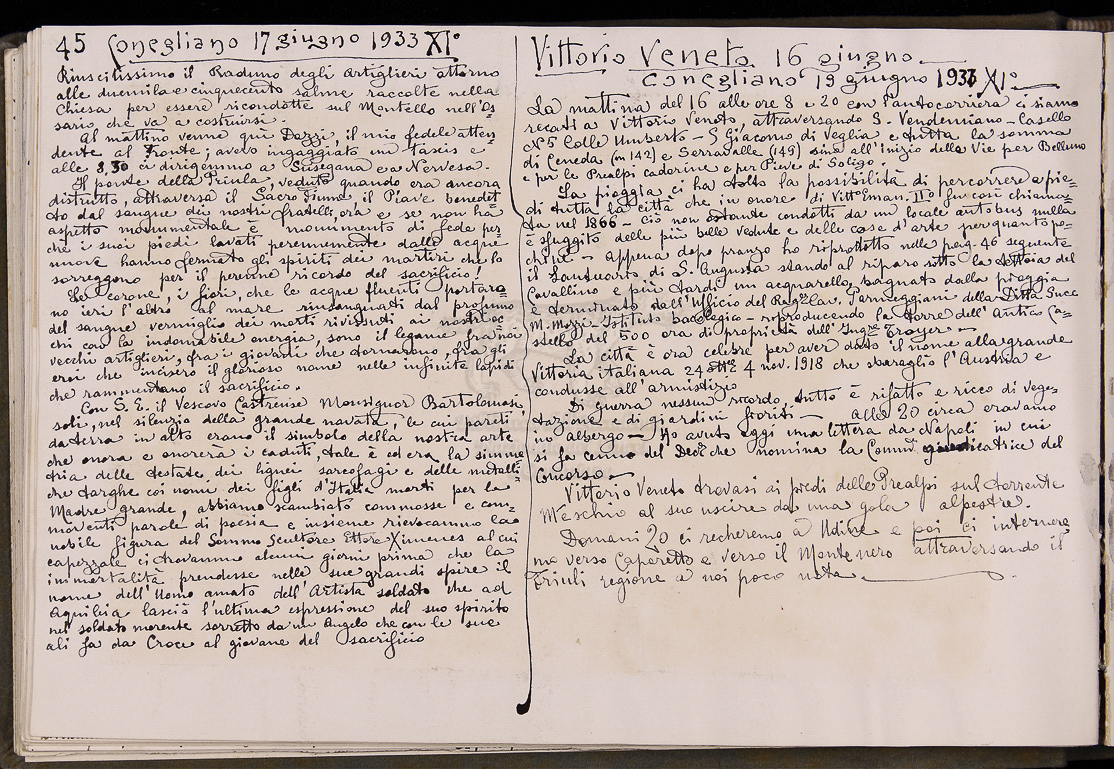 45 Conegliano 17 giugno 1933 XI°
Riuscitissimo il Raduno degli Artiglieri attorno
alle duemila e cinquecento salme raccolte nella
Chiesa per essere ricondotte sul Montello nell'Os
sario che va a costruirsi.
Al mattino venne qui Dozzi, il mio fedele atten
dente al Fronte; avevo ingaggiato un taxis e
alle 8,30 ci dirigemmo a Susegana e a Nervesa.
Il ponte della Priula, veduto quando era ancora
distrutto, attraversa il Sacro Fiume, il Piave benedet
to dal sangue dei nostri fratelli, ora e se non ha
aspetto monumentale è monumento di fede per
che i suoi piedi lavati perennemente dalle acque
nuove hanno fermato gli spiriti dei martiri che lo
sorreggono per il perenne ricordo del sacrificio!
Le corone, i fiori, che le acque fluenti portaro
no ieri l'altro al mare rinsanguati dal profumo
del sangue vermiglio dei morti rivissuti ai nostri oc
chi con la indomabile energia, sono il legame fra noi
vecchi artiglieri, fra i giovani che tornarono, fra gli
eroi che incisero il glorioso nome nelle infinite lapidi
che rammentano il sacrificio.
Con S. E. il Vescovo Castrense Monsignor Bartolomasi
soli, nel silenzio della grande navata, le cui pareti
da terra in alto erano il simbolo della nostra arte
che onora e onorerà i caduti, tale è ed era la simme
tria delle testate dei lignei sarcofagi e delle metalli
che targhe coi nomi dei figli d'Italia morti per la
Madre grande, abbiamo scambiato commosse e com=
moventi parole di poesia e insieme rievocammo la
nobile figura del Sommo Scultore Ettore Ximenes al cui
capezzale ci trovammo alcuni giorni prima che la
immortalità prendesse nelle sue grandi spire il
nome dell'Uomo amato dell'Artista soldato che ad
Aquileia lasciò l'ultima espressione del suo spirito
nel soldato morente sorretto da un Angelo che con le sue
ali fa da Croce al giovane del sacrificio
Vittorio Veneto 16 giugno
Conegliano 19 giugno 1933 XI°
La mattina del 16 alle ore 8 e 20 con l'autocorriera ci siamo
recati a Vittorio Veneto, attraversando S. Vendemiano - Casello
N° 5 Colle Umberto - S Giacomo di Veglia e tutta la
di Ceneda (m 142) e Serravalle (149) sino all'inizio della Vie per Belluno
e per le Prealpi cadorine e per Pieve di Soligo.
La pioggia ci ha tolto la possibilità di percorrere a pie=
di tutta la città che in onore di Vitt° Eman. II° fu così chiama=
ta nel 1866 - ciò non ostante condotti da un locale autobus nulla
è sfuggito delle più belle vedute e delle cose d'arte per quanto po=
che - Appena dopo pranzo ho riprodotto nelle pag. 46 seguente
il Santuario di S. Augusta stando al riparo sotto la tettoia del
Cavallino e più tardi un acquarello, bagnato dalla pioggia
e terminato dall'Ufficio del Parmeggiani della Ditta Succ
M. Mozzi - Istituto bacologico - riproducendo la torre dell'Antico Ca=
stello del 500 ora di proprietà dell'Ing.re Troyer -
La città è ora celebre per aver dato il nome alla grande
Vittoria italiana 24 ott.re 4 nov. 1918 che sbaragliò l'Austria e
condusse all'armistizio
Di guerra nessun ricordo, tutto è rifatto e ricco di vege=
tazione e di giardini fioriti - Alle 20 circa eravamo
in albergo - Ho avuto oggi una lettera da Napoli in cui
si fa cenno del Dec.to che nomina la Comm. giudicatrice del
Concorso -
Vittorio Veneto trovasi ai piedi delle Prealpi sul torrente
Meschio al suo uscire da una gola alpestre.
Domani 20 ci recheremo a Udine e poi ci internere
mo verso Caporetto e verso il Monte nero attraversando il
Friuli regione a noi poco nota